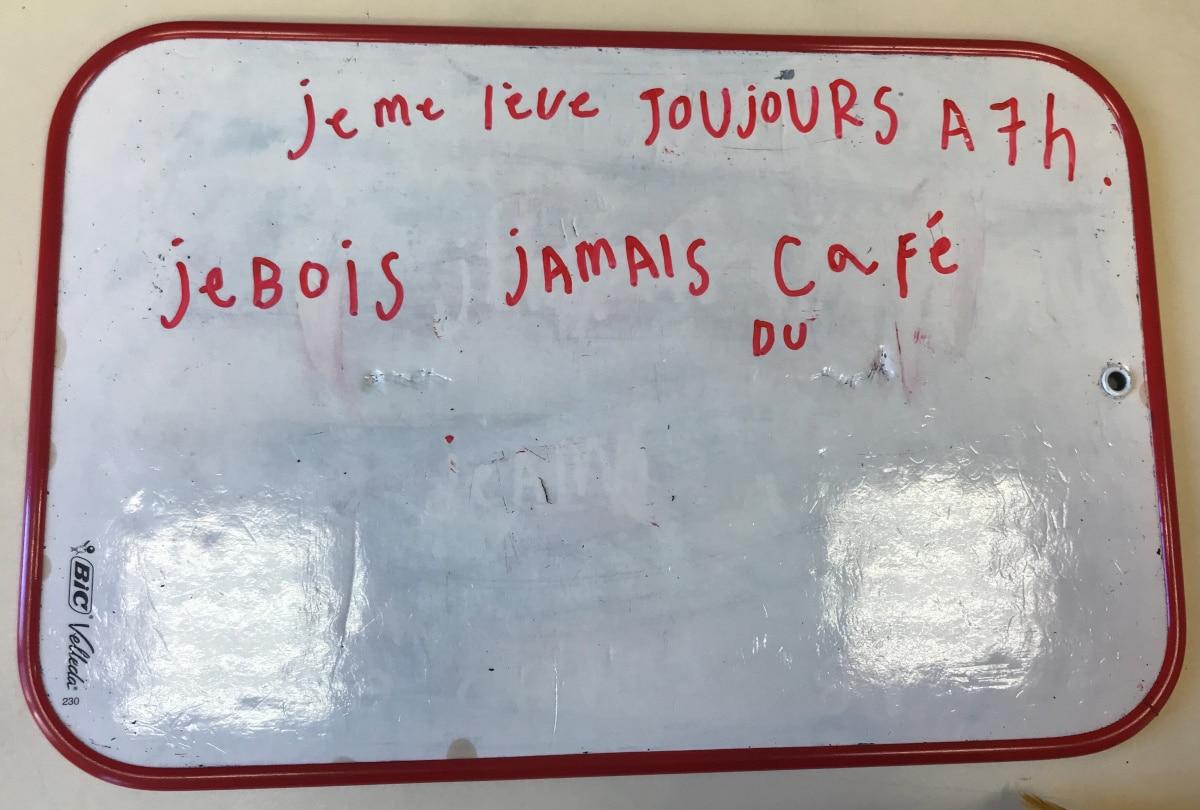 je me lève JOUJOURS A 7h.
je BOIS jAMAIS Café
DU
BIC Velleda
230